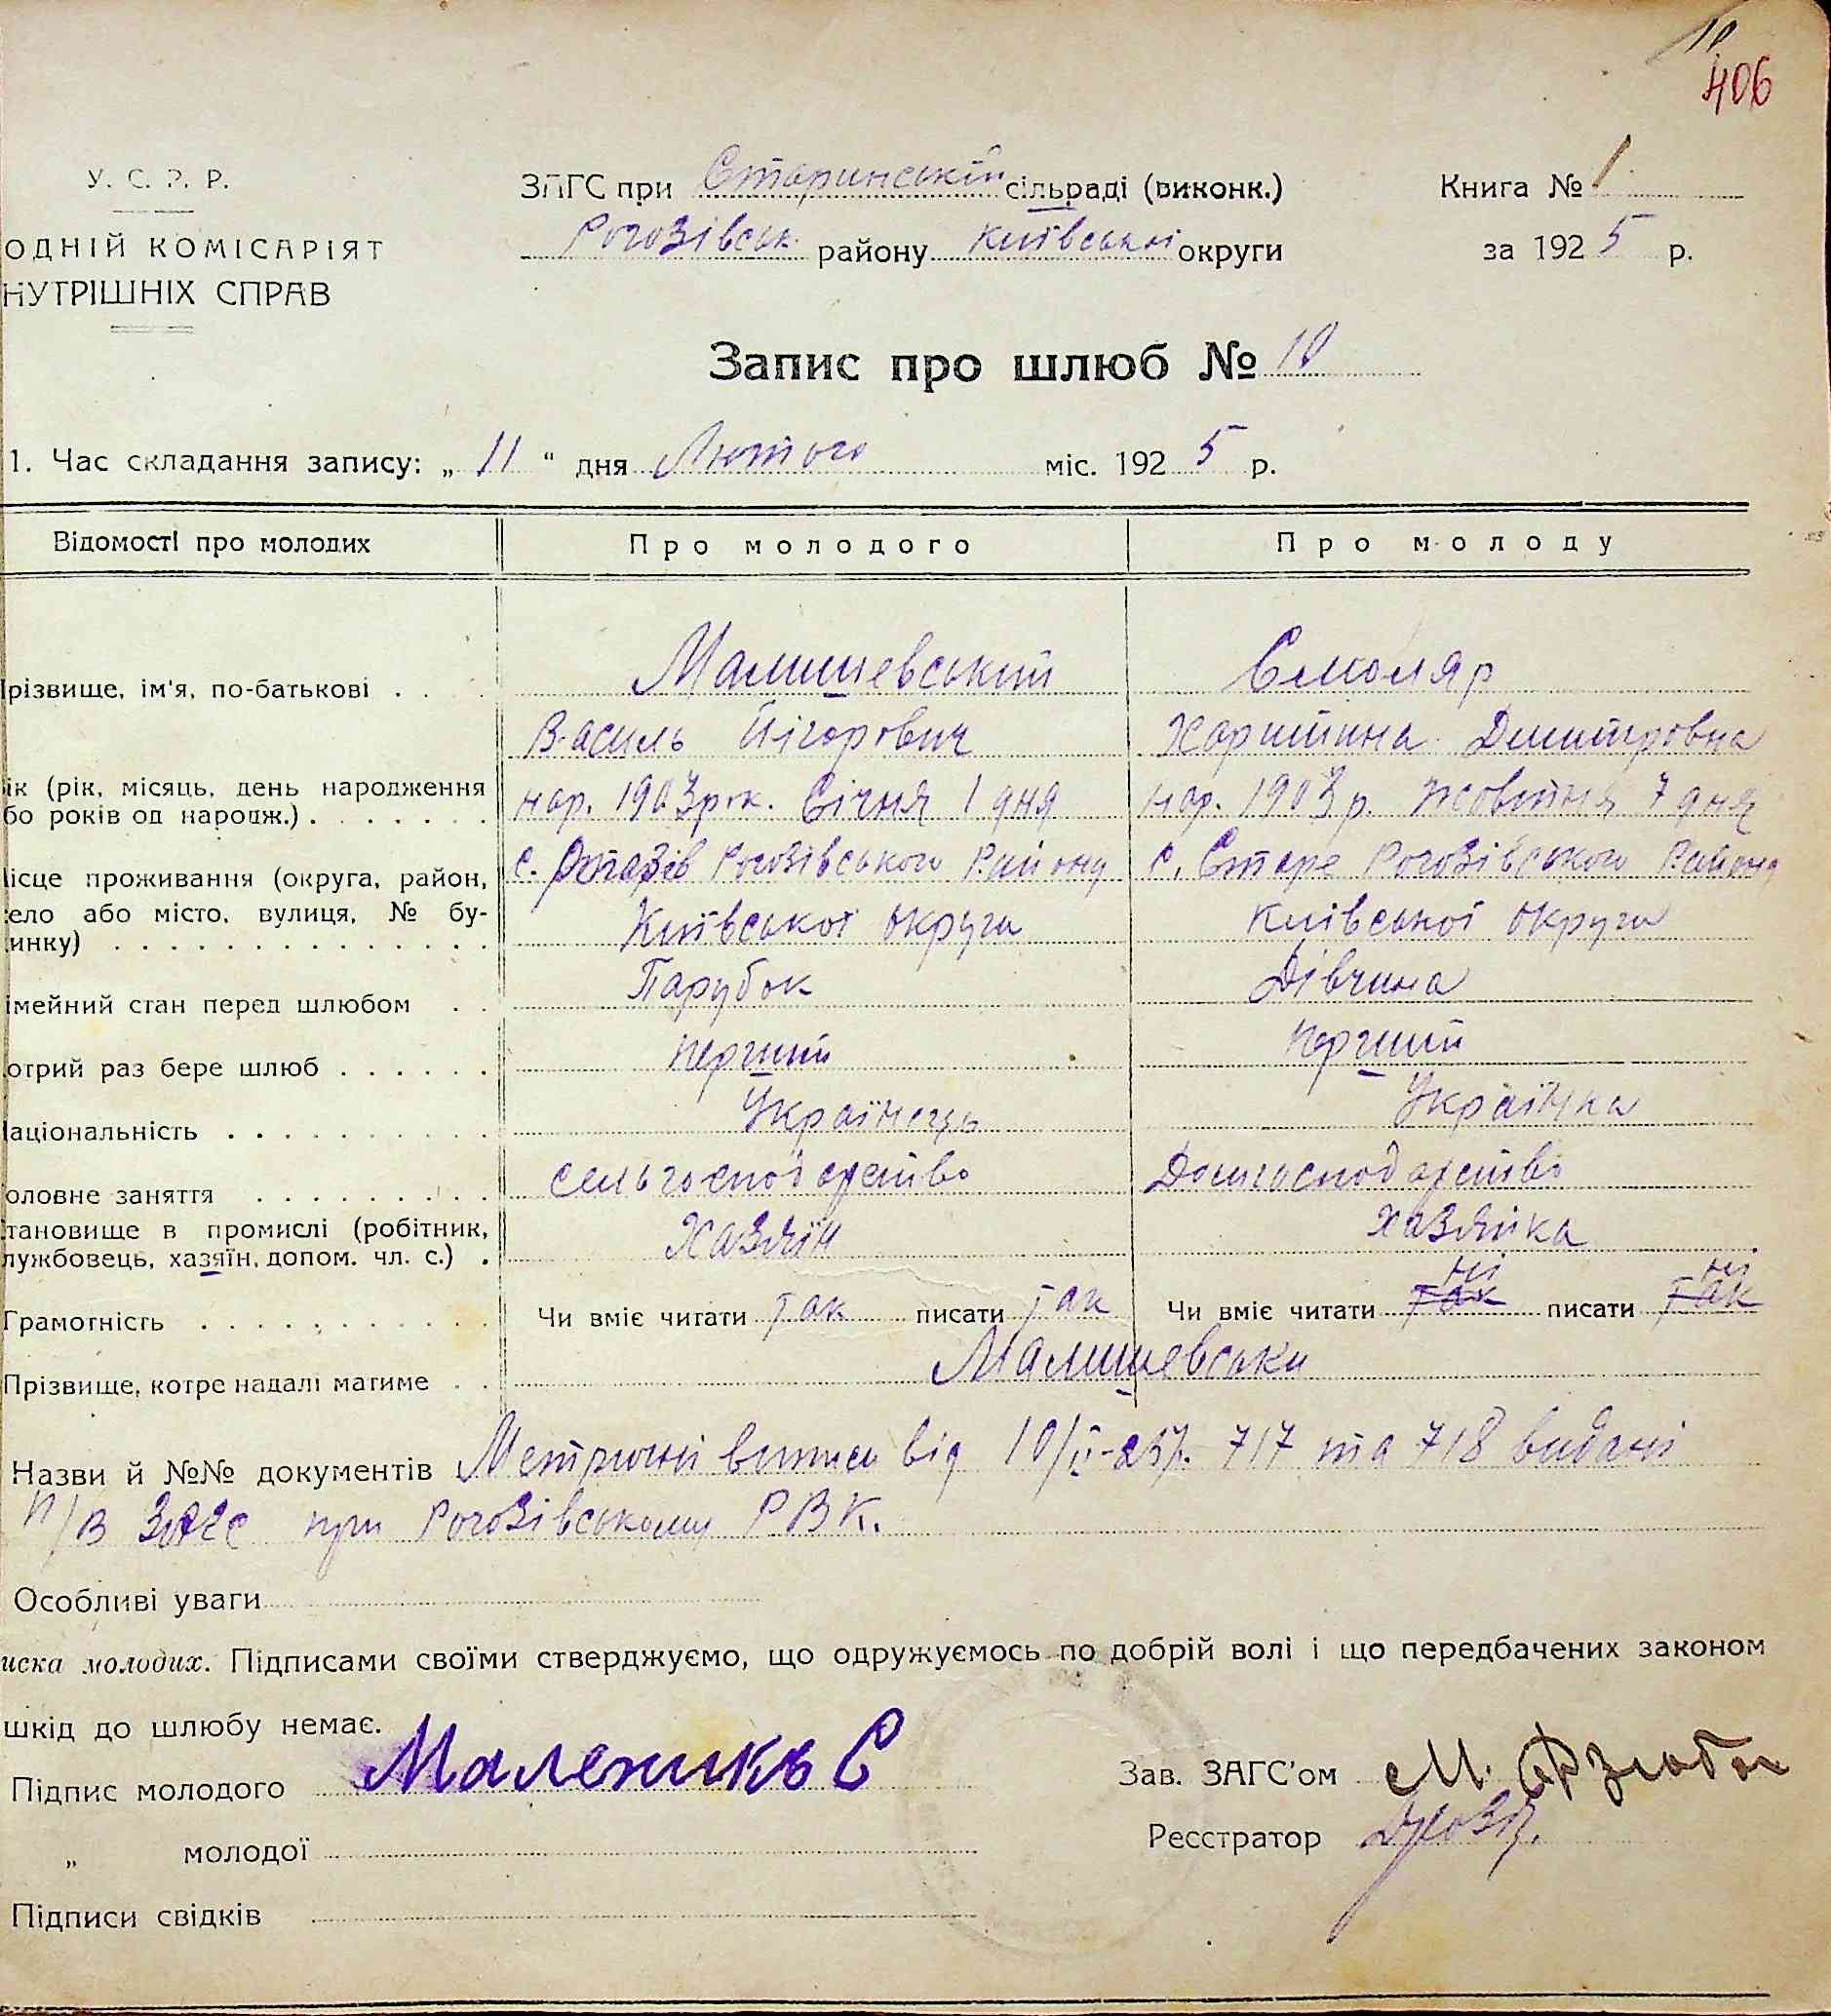 10
406
У. С. Р. Р.
ЗАГС при Старинській сільраді (виконк.)
Книга № 1
ОДНІЙ КОМІСАРІЯТ
Рогозівськ. району Київської округи
за 1925 р.
НУТРІШНІХ СПРАВ
Запис про шлюб № 10
1. Час складання запису: „ 11 “ дня Лютого міс. 1925 р.
Відомості про молодих
Про молодого
Про молоду
різвище, ім'я, по-батькові . .
Малишевський
Смоляр
Василь Йігорович
Харитина Дмитровна
ік (рік, місяць, день народження
бо років од народж.) . . . . . . .
нар. 1903 рок. Січня 1 дня
нар. 1903 р. Жовтня 7 дня
ісце проживання (округа, район,
ело або місто, вулиця, № бу-
инку) . . . . . . . . . . . . . .
с. Рогозівського Району
Київської округи
с. Старе Рогозівського Району
Київської округи
імейний стан перед шлюбом . .
Парубок
Дівчина
отрий раз бере шлюб . . . . . .
перший
перший
аціональність . . . . . . . . . .
Українець
Українка
оловне заняття . . . . . . . . .
сельгосподарство
Домгосподарство
тановище в промислі (робітник,
лужбовець, хазяїн, допом. чл. с.) .
Хазяїн
хазяйка
Грамотність . . . . . . . . . . .
Чи вміє читати так писати так
ні ні
Чи вміє читати так писати так
Прізвище, котре надалі матиме . .
Малишевськи
Назви й №№ документів Метричні виписи від 10/II-25р. 717 та 718 видані
п/в ЗАГС при Рогозівському РВК.
Особливі уваги
иска молодих. Підписами своїми стверджуємо, що одружуємось по добрій волі і що передбачених законом
шкід до шлюбу немає.
Підпис молодого
Зав. ЗАГС’ом М.
„ молодої
Реєстратор
Підписи свідків